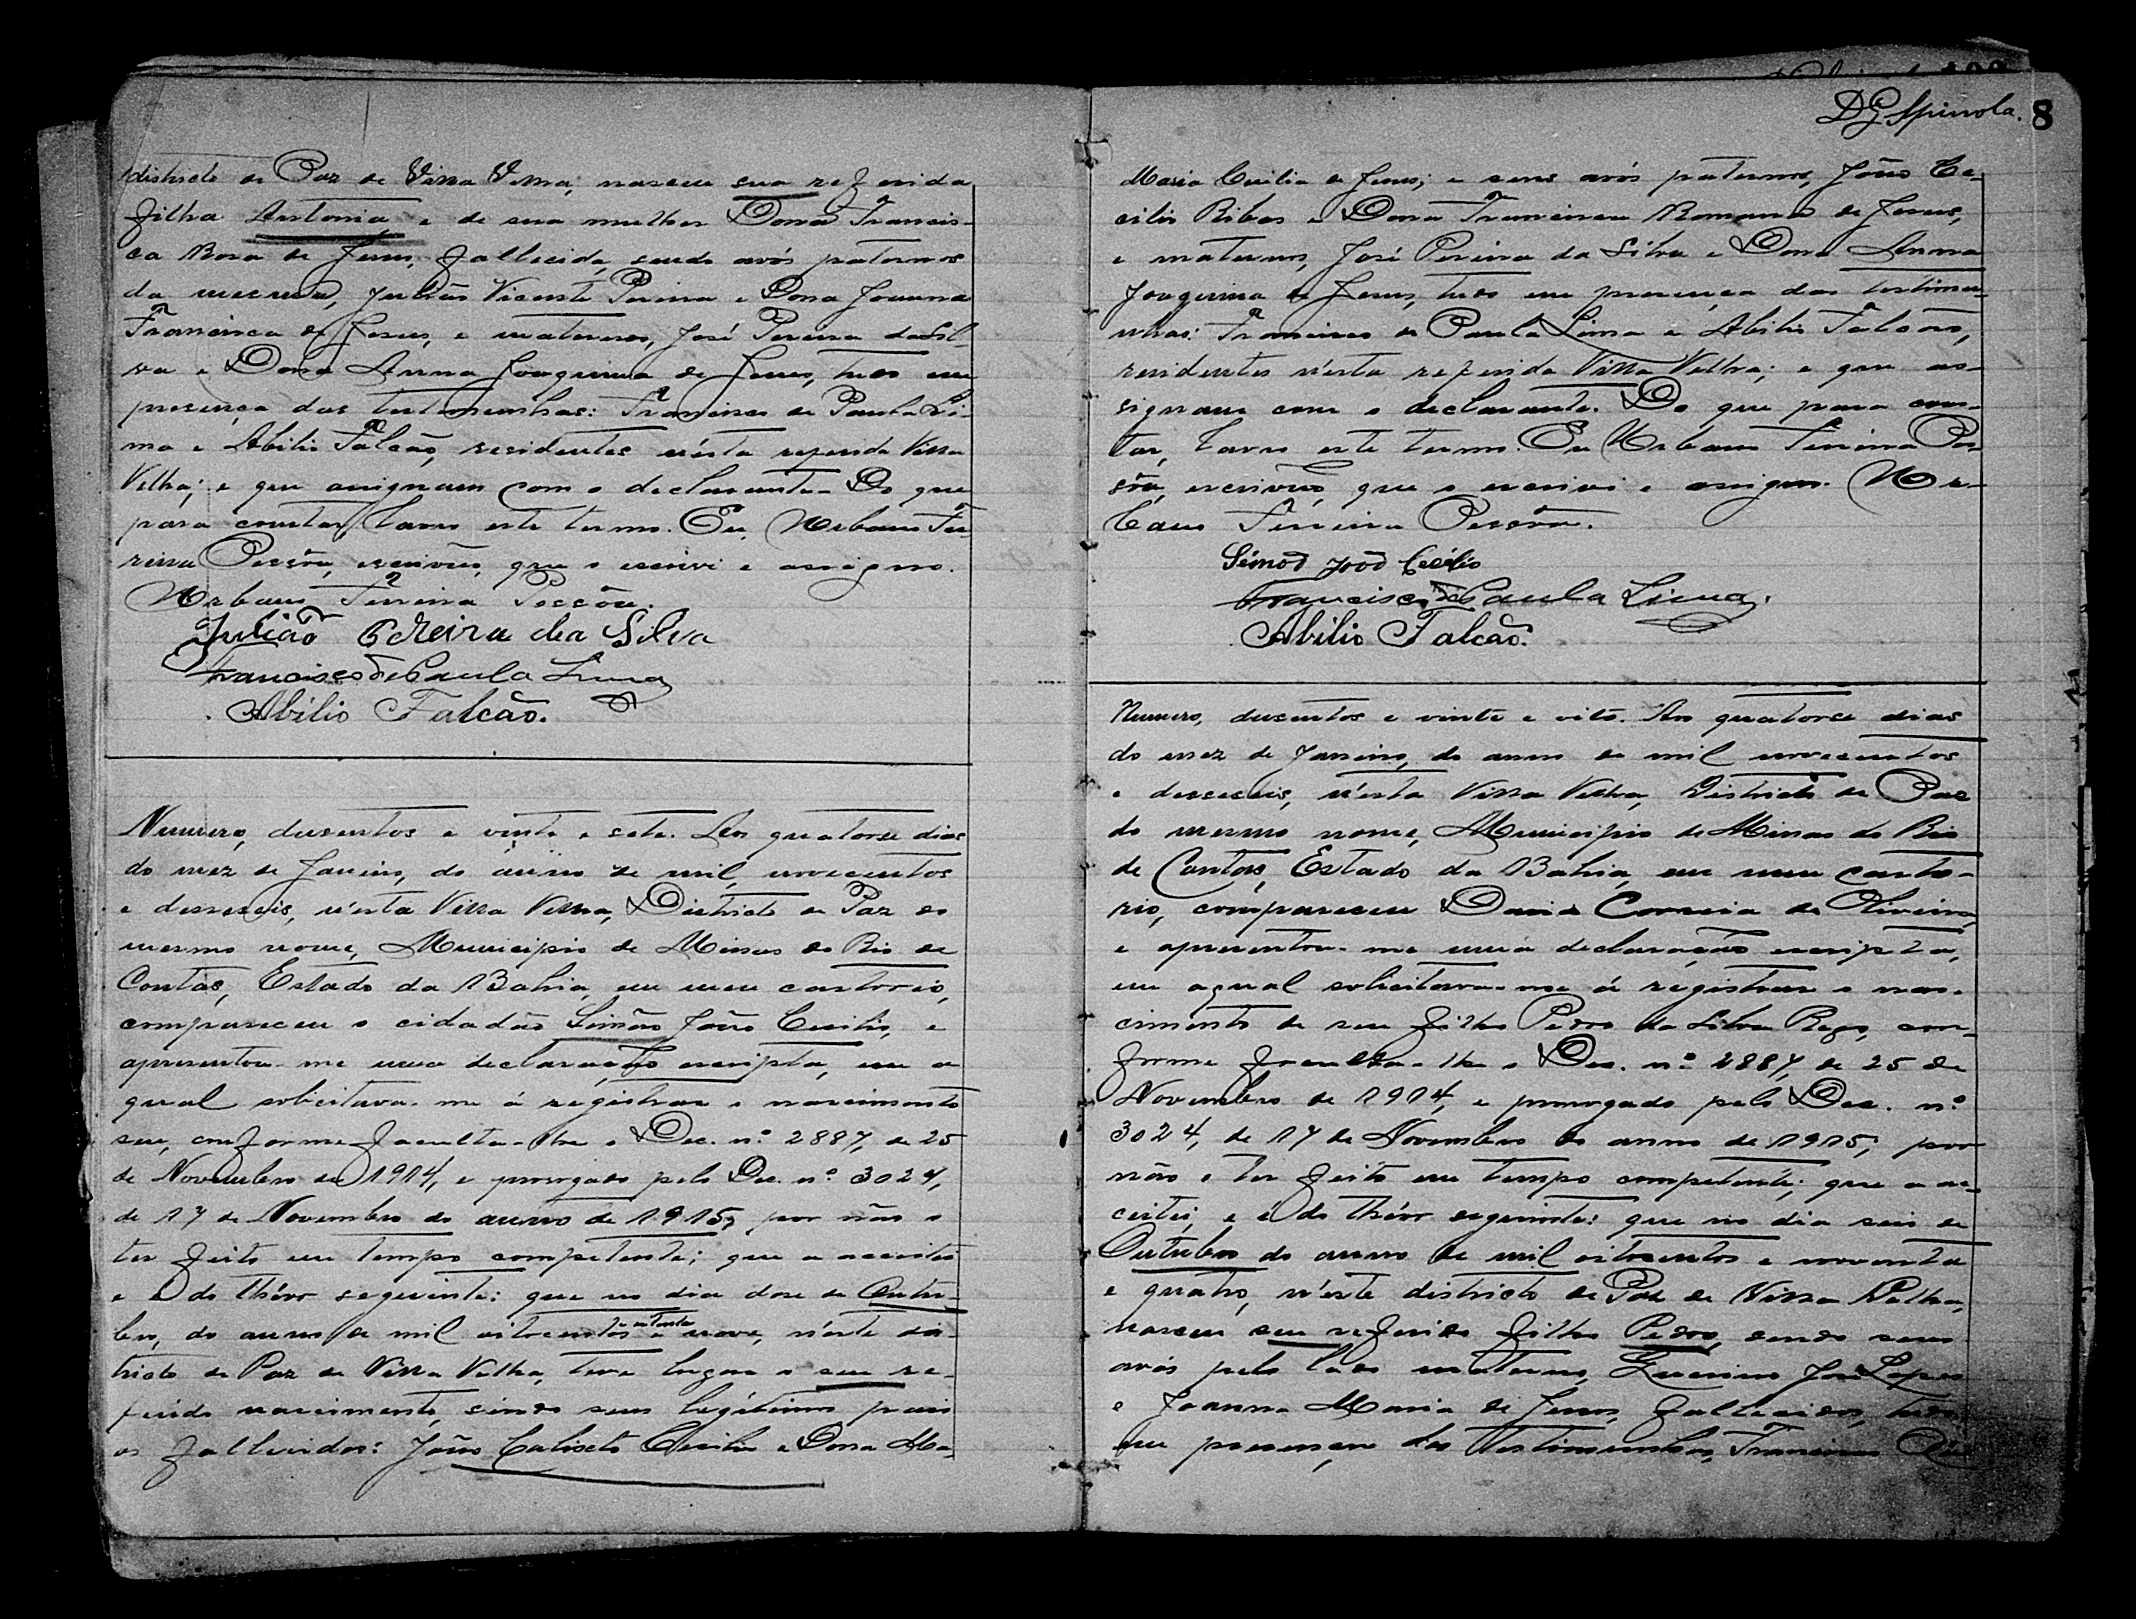 districto de Paz de Villa Velha, nasceu sua referida
filha Antonia, e de sua mulher Dona Francis-
ca Rosa de Jesus, fallecida, sendo avós paternos
da mesma, Julião Vicente Pereira e Dona Joanna
Francisca de Jesus, e maternos, José Pereira da Sil-
va e Dona Anna Joaquina de Jesus, tudo em
presença das testemunhas: Francisco de Paula Li-
ma e Abilio Falcão, residentes n'esta referida Villa
Velha; e que assignam com o declarante. Do que
para constar, lavro este termo. Eu, Urbano Fer-
reira Pessôa, escrivão, que o escrivi e assigno.
Urbano Ferreira Pessôa.
Julião Pereira da Silva
Francisco de Paula Lima
Abilio Falcão.
Numero, dusentos e vinte e sete. Aos quatorse dias
do mez de Janeiro, do anno de mil novecentos
e deseseis, n'esta Villa Velha, Districto de Paz do
mesmo nome, Municipio de Minas do Rio de
Contas, Estado da Bahia, em meu cartorio,
compareceu o cidadão Simão João Cecilio, e
apresentou-me uma declaração escripta, em a
qual solicitava-me á registrar o nascimento
seu, conforme faculta-lhe o Dec. nº 2887, de 25
de Novembro de 1914, e prorogado pelo Dec. nº 3024,
de 17 de Novembro do anno de 1915, por não o
ter feito em tempo competente; que a acceitei
e é do thêor seguinte: que no dia dose de Outu-
bro, do anno de mil oitocentos e oitenta e nove, n'este dis-
tricto de Paz de Villa Velha, teve lugar o seu re-
ferido nascimento, sendo seus legitimos paes
os fallecidos: João Calixto Cecilio e Dona Ma-
DG Spinola. 8
Maria Cecilia de Jesus; e seus avós paternos, João Ce-
cilio Ribas e Dona Francisca Romana de Jesus,
e maternos, José Pereira da Silva e Dona Anna
Joaquina de Jesus, tudo em presença das testemu-
nhas: Francisco de Paula Lima e Abilio Falcão,
residentes n'esta referida Villa Velha; e que as-
signam com o declarante. Do que para cons-
tar, lavro este termo. Eu Urbano Ferreira Pes-
sôa, escrivão, que o escrivi e assigno. Ur-
bano Ferreira Pessôa.
Simão João Cecilio
Francisco de Paula Lima.
Abilio Falcão.
Numero, dusentos e vinte e oito. Aos quatorse dias
do mez de Janeiro, do anno de mil novecentos
e desesseis, n'esta Villa Velha, Districto de Paz
do mesmo nome, Municipio de Minas do Rio
de Contas, Estado da Bahia, em meu carto-
rio, compareceu David Correia de Oliveira,
e apresentou-me uma declaração escripta,
em a qual solicitava-me á registrar o nas-
cimento de seu filho Pedro da Silva Rego, con-
forme faculta-lhe o Dec. nº 2887, de 25 de
Novembro de 1914, e prorogado pelo Dec. nº
3024, de 17 de Novembro do anno de 1915, por
não o ter feito em tempo competente; que a ac-
ceitei, e é do thêor seguinte: que no dia seis de
Outubro do anno de mil oitocentos e noventa
e quatro, n'este districto de Paz de Villa Velha,
nasceu seu referido filho Pedro, sendo seus
avós pelo lado materno, José Lopes
e Joanna Maria de Jesus, fallecidos, tudo
em presença das testemunhas, Francisco